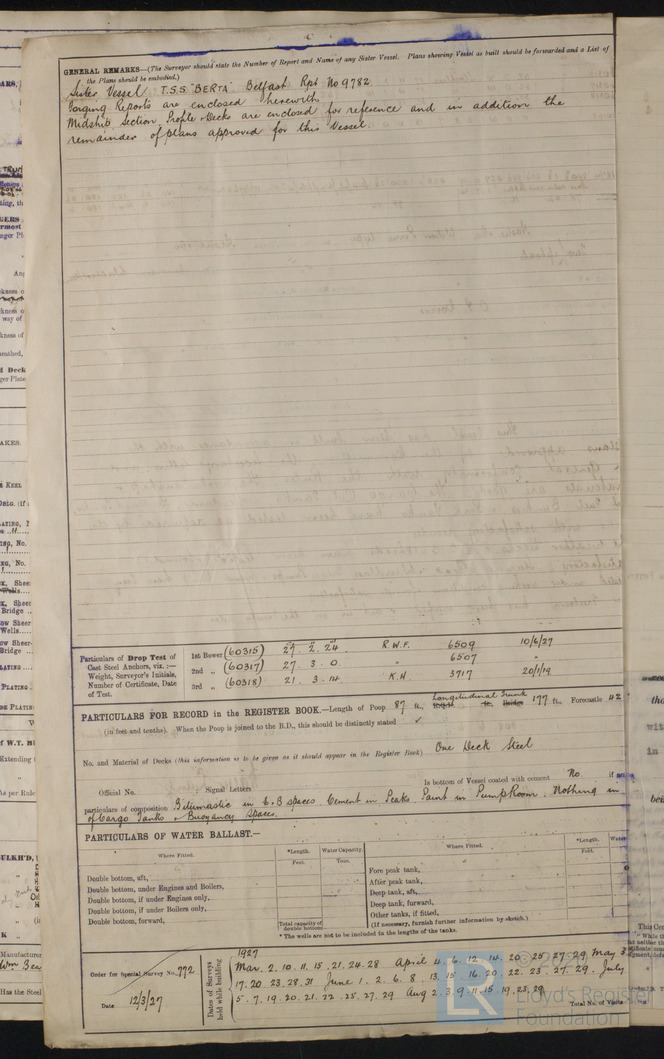 GENERAL REMARKS—(The Surveyor should state the Number of Report and Name of any Sister Vessel. Plans showing Vessel as built should be forwarded and a List of
the Plans should be embodied.)
Sister Vessel T.S.S. "BERTA" Belfast Rpt No 9782.
Forging Reports are enclosed herewith.
Midship Section, Profile & Decks are enclosed for reference and in addition the
remainder of plans approved for this Vessel.
Particulars of Drop Test of
Cast Steel Anchors, viz. :—
Weight, Surveyor's Initials,
Number of Certificate, Date
of Test.
1st Bower (60315) 27. 2. 24 R.W.F. 6509 10/6/27
2nd „ (60317) 27. 3. 0. " 6507 "
3rd „ (60318) 21. 3. 14. K.H. 3717 20/1/19
PARTICULARS FOR RECORD in the REGISTER BOOK.—Length of Poop 87 ft., Longitudinal Trunk 177 ft., Forecastle 42
(in feet and tenths). When the Poop is joined to the B.D., this should be distinctly stated ✓
No. and Material of Decks (this information is to be given as it should appear in the Register Book) One Deck Steel
Official No. Signal Letters Is bottom of Vessel coated with cement No. if
particulars of composition Bitumastic in C.B spaces Cement in Peaks. Paint in Pump Room. Nothing in
of Cargo Tanks & Buoyancy Spaces.
PARTICULARS OF WATER BALLAST.—
Where Fitted. *Length. Water Capacity. Where Fitted. *Length. Water
Feet. Tons. Feet.
Double bottom, aft,
Double bottom, under Engines and Boilers,
Double bottom, if under Engines only,
Double bottom, if under Boilers only,
Double bottom, forward,
Total capacity of double bottom
Fore peak tank,
After peak tank,
Deep tank, aft,
Deep tank, forward,
Other tanks, if fitted,
(If necessary, furnish further information by sketch.)
* The wells are not to be included in the lengths of the tanks.
Order for Special Survey No. 772
Date 12/3/27
Dates of Surveys held while building
1927
Mar. 2. 10. 11. 15. 21. 24. 28 April 4. 6. 12. 14. 20. 25. 27. 29. May 3.
17. 20. 23. 28. 31 June 1. 2. 6. 8. 13. 15. 16. 20. 22. 23. 27. 29. July
5. 7. 19. 20. 21. 22. 25. 27. 29 Aug 2. 3. 9. 11. 15 19. 23. 29
Total No. of Visits
Lloyd's Register
Foundation